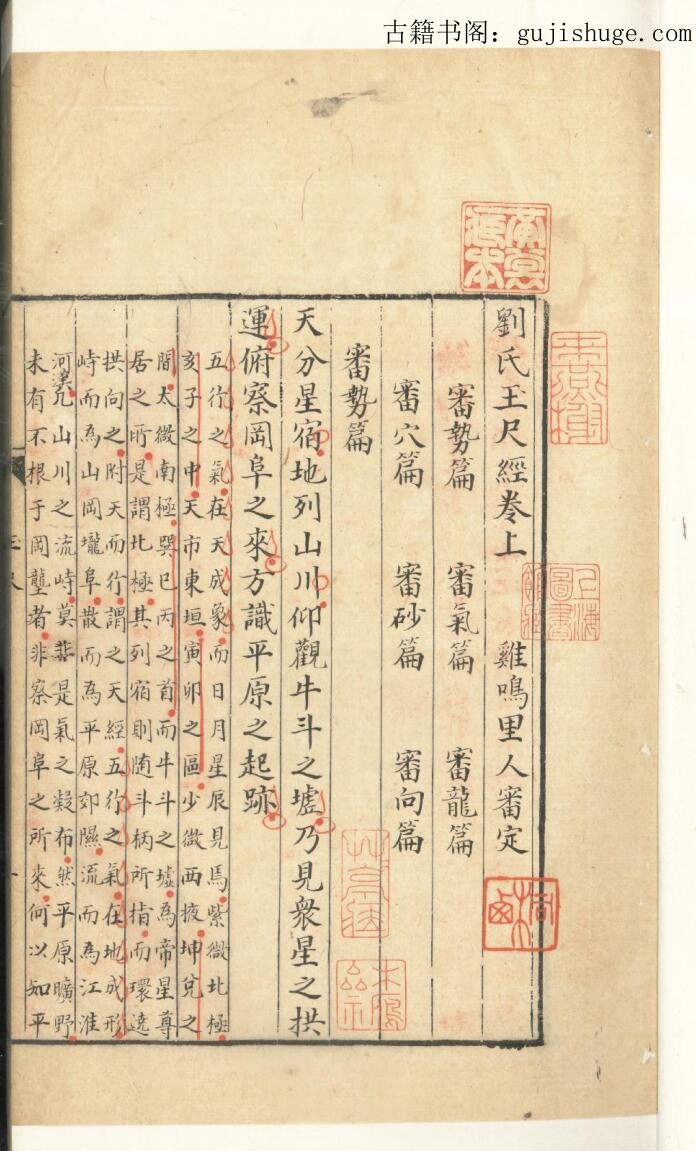 古籍书阁：gujishuge.com
劉氏玉尺經卷上　雞鳴里人審定
審勢篇　審氣篇　審龍篇
審穴篇　審砂篇　審向篇
審勢篇
天分星宿地列山川仰觀牛斗之墟乃見衆星之拱
運俯察岡阜之來方識平原之起跡
五行之氣在天成象而日月星辰見焉紫微北極
亥子之中天市東垣寅卯之區少微西掖坤兌之
間太微南極巽巳丙之首而牛斗之墟為帝星尊
居之所是謂北極其列宿則随斗柄所指而環遶
拱向之附天而行謂之天經五行之氣在地成形
峙而為山岡壠阜散而為平原郊隰流而為江淮
河漢凡山川之流峙莫非是氣之凝布然平原曠野
未有不根于岡壟者非察岡阜之所來何以知平
上海圖書館藏